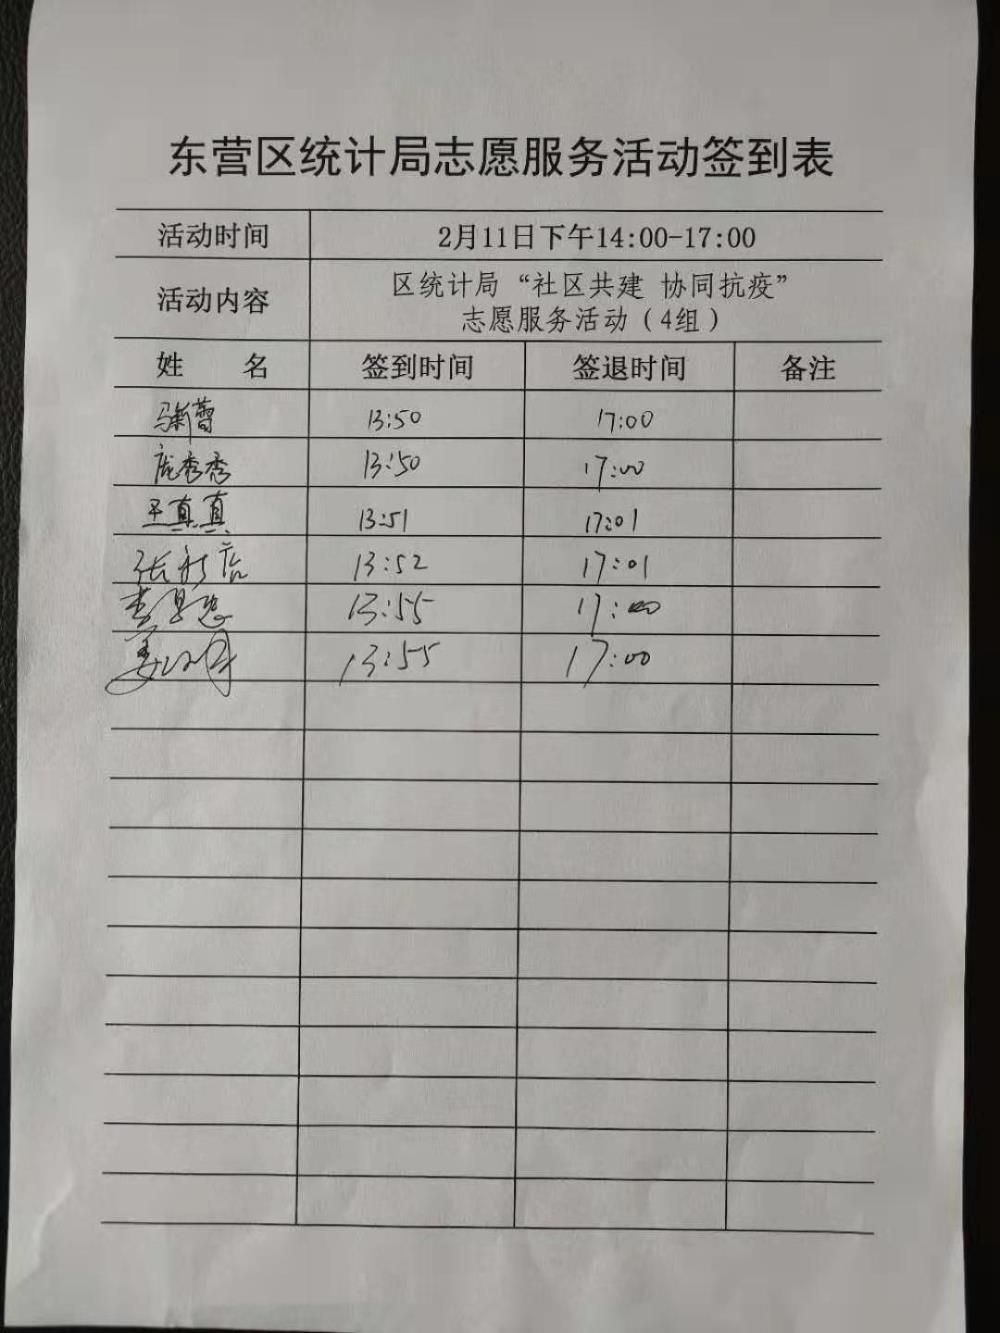 东营区统计局志愿服务活动签到表
活动时间 2月11日下午14:00-17:00
活动内容 区统计局“社区共建 协同抗疫”
志愿服务活动（4组）
姓 名 签到时间 签退时间 备注
13:50 17:00
庞秀秀 13:50 17:00
王真真 13:51 17:01
13:52 17:01
13:55 17:00
13:55 17:00